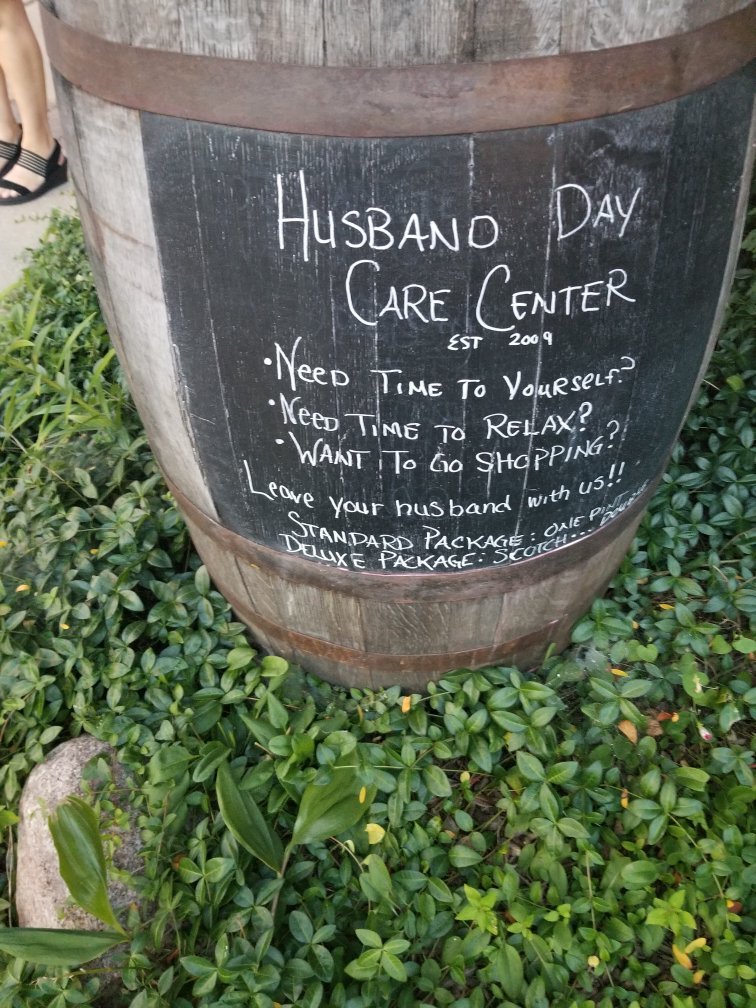 HUSBAND DAY
CARE CENTER
EST 2009
• NEED TIME TO YOURSELF?
• NEED TIME TO RELAX?
• WANT TO GO SHOPPING?
Leave your husband with us!!
STANDARD PACKAGE: ONE PINT
DELUXE PACKAGE: SCOTCH... DOUBLE